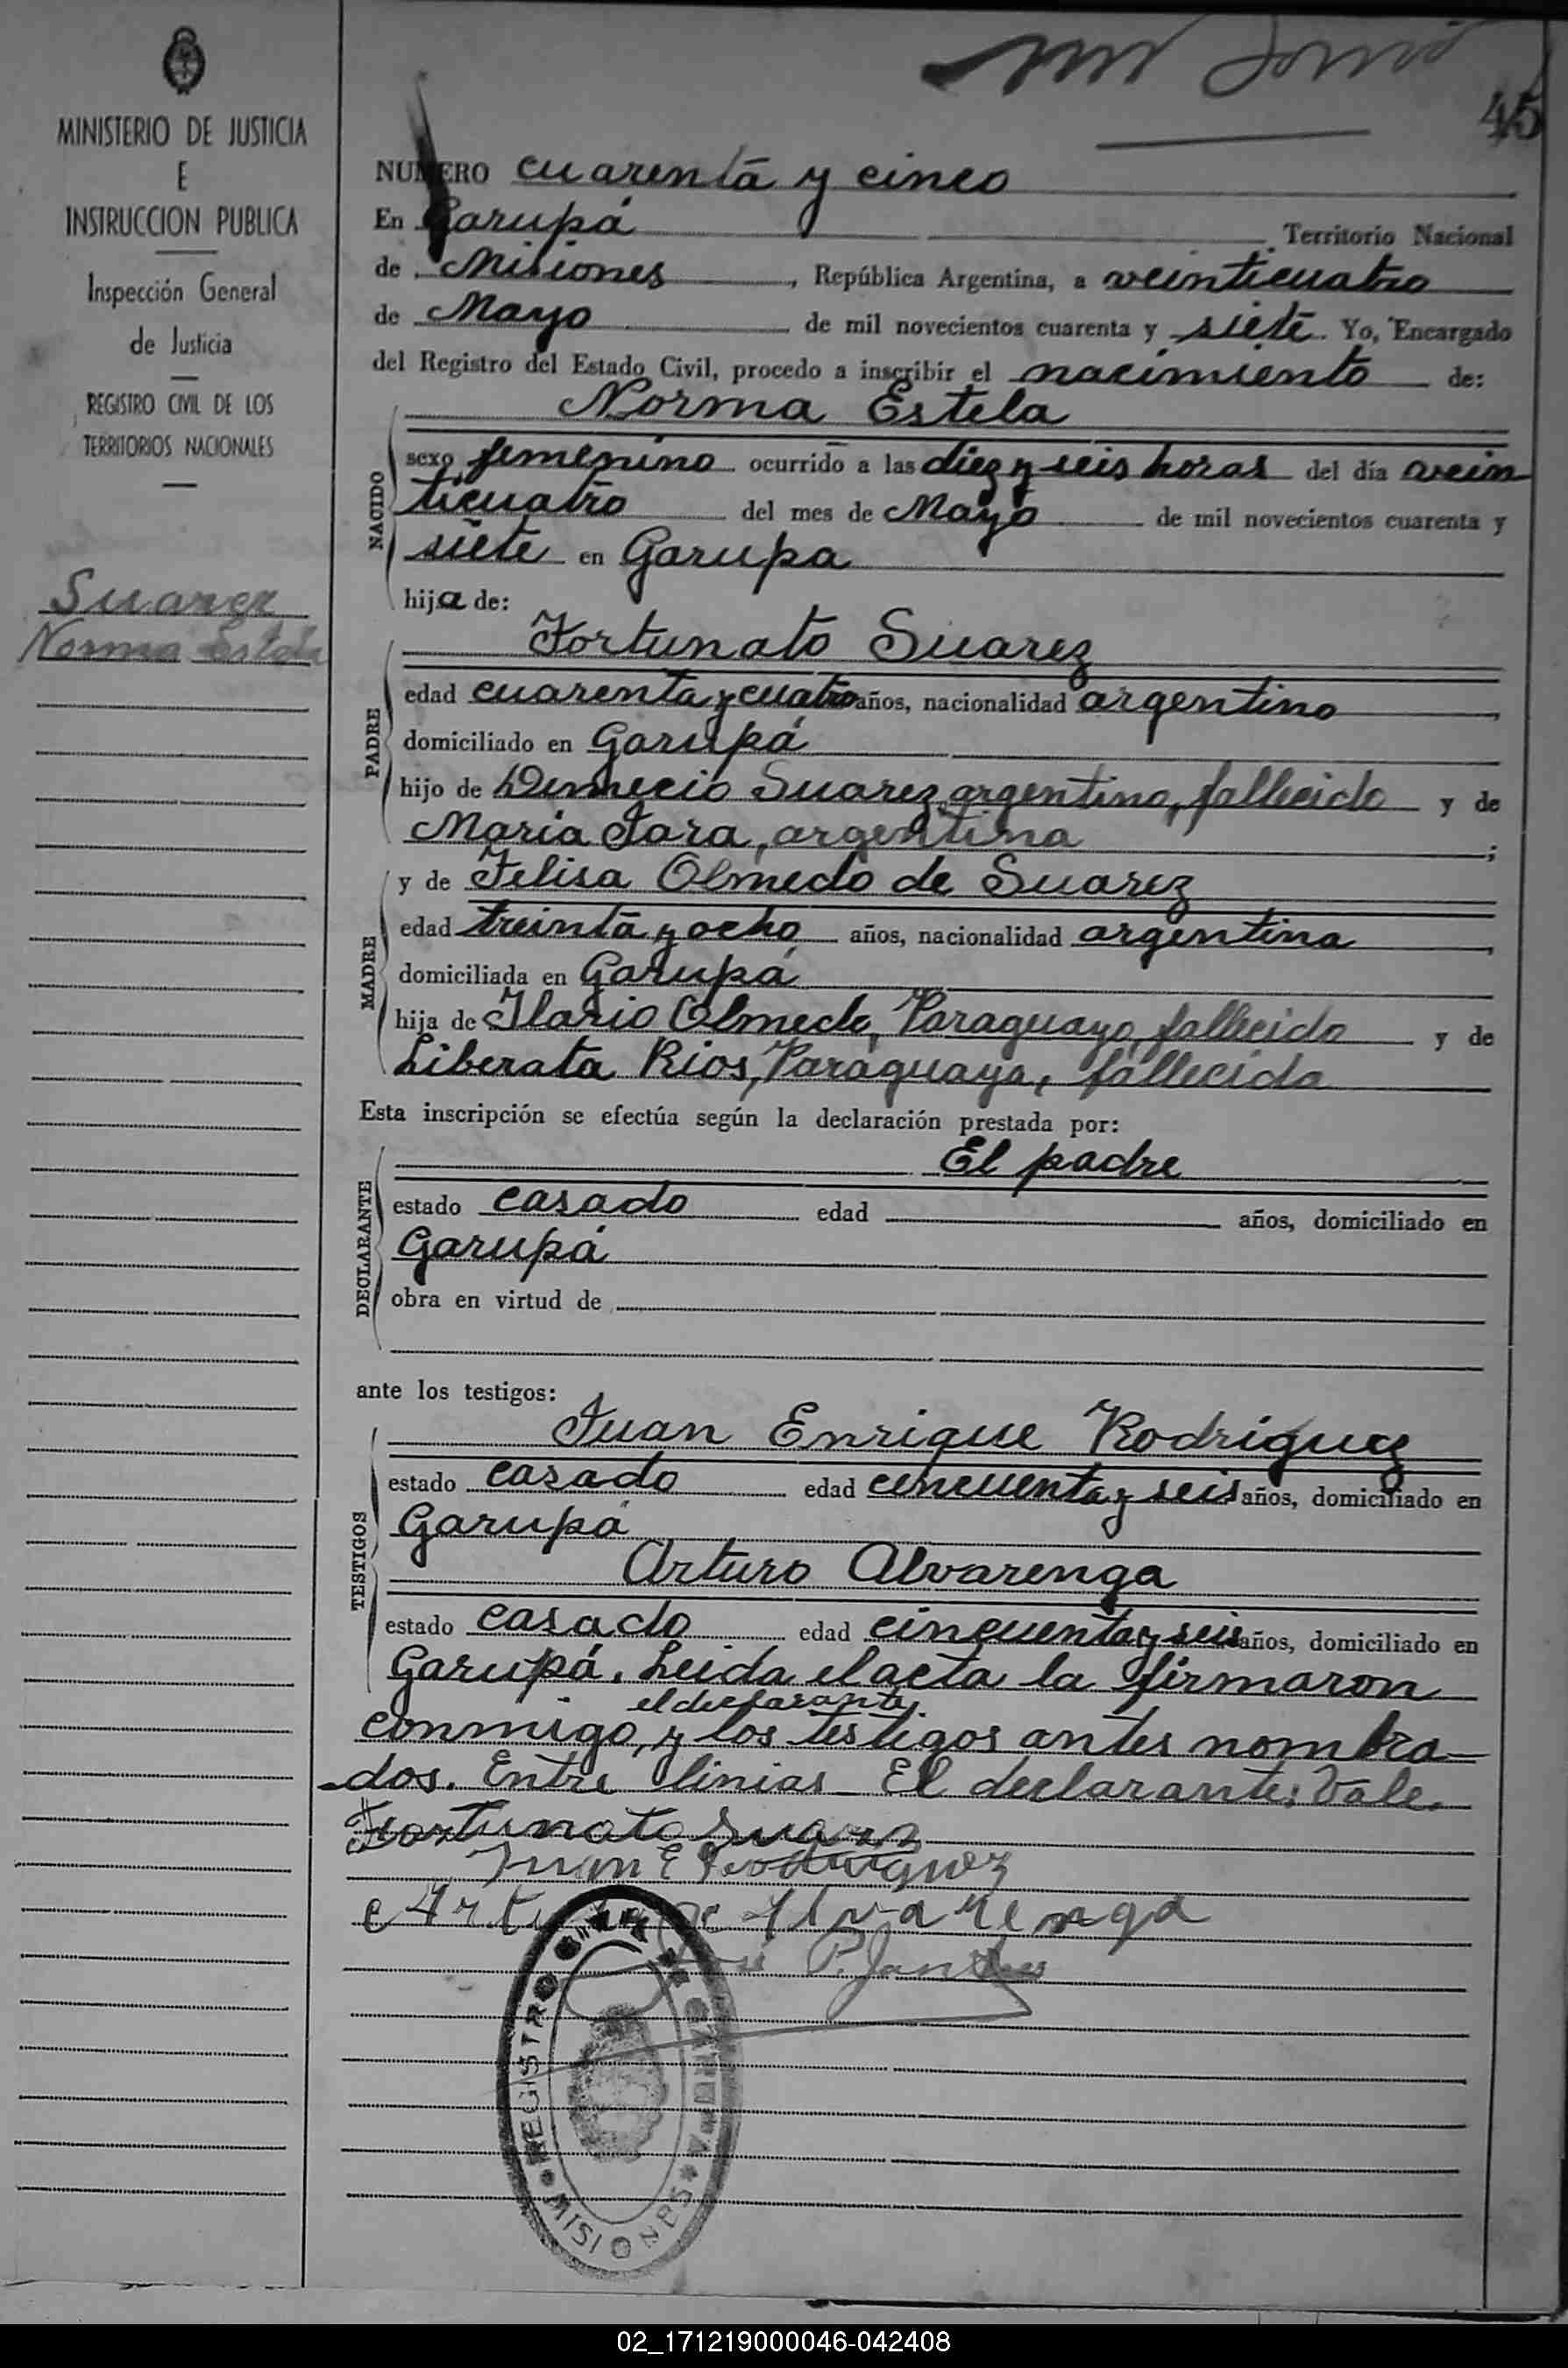 45
MINISTERIO DE JUSTICIA
E
INSTRUCCION PUBLICA
Inspección General
de Justicia
REGISTRO CIVIL DE LOS
TERRITORIOS NACIONALES
Suarez
Norma Estela
NUMERO cuarenta y cinco
En Garupá Territorio Nacional
de Misiones, República Argentina, a veinticuatro
de Mayo de mil novecientos cuarenta y siete. Yo, Encargado
del Registro del Estado Civil, procedo a inscribir el nacimiento de:
NACIDO
Norma Estela
sexo femenino ocurrido a las diez y seis horas del día vein
ticuatro del mes de Mayo de mil novecientos cuarenta y
siete en Garupa
hija de:
PADRE
Fortunato Suarez
edad cuarenta y cuatro años, nacionalidad argentino,
domiciliado en Garupá
hijo de Suarez, argentino, fallecido y de
Maria Jara, argentina;
MADRE
y de Felisa Olmedo de Suarez
edad treinta y ocho años, nacionalidad argentina,
domiciliada en Garupá
hija de Ilario Olmedo, Paraguayo, fallecido y de
Liberata Rios, Paraguaya, fallecida
Esta inscripción se efectúa según la declaración prestada por:
DECLARANTE
El padre
estado casado edad años, domiciliado en
Garupá
obra en virtud de
ante los testigos:
TESTIGOS
Juan Enrique Rodriguez
estado casado edad cincuenta y seis años, domiciliado en
Garupá
Arturo Alvarenga
estado casado edad cincuenta y seis años, domiciliado en
Garupá. Leida el acta la firmaron
el declarante
conmigo, y los testigos antes nombra-
dos. Entre linias El declarante: Vale.
Fortunato Suarez
Juan E Rodriguez
Alvarenga
REGISTRO CIVIL GARUPA MISIONES
02_171219000046-042408